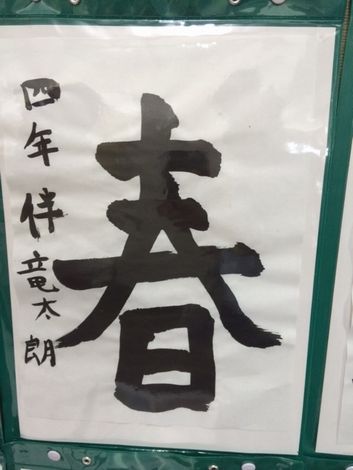 春
四年 伴竜太朗